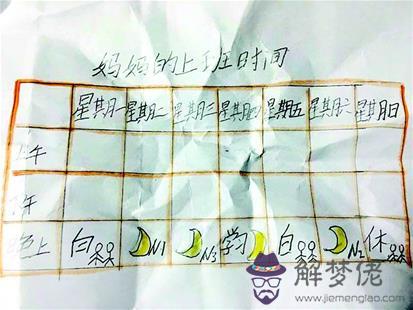 妈妈的上班时间
星期一 星期二 星期三 星期四 星期五 星期六 星期日
上午
下午
晚上 白 N1 N3 学 白 N2 休
解梦佬
www.jiemenglao.com